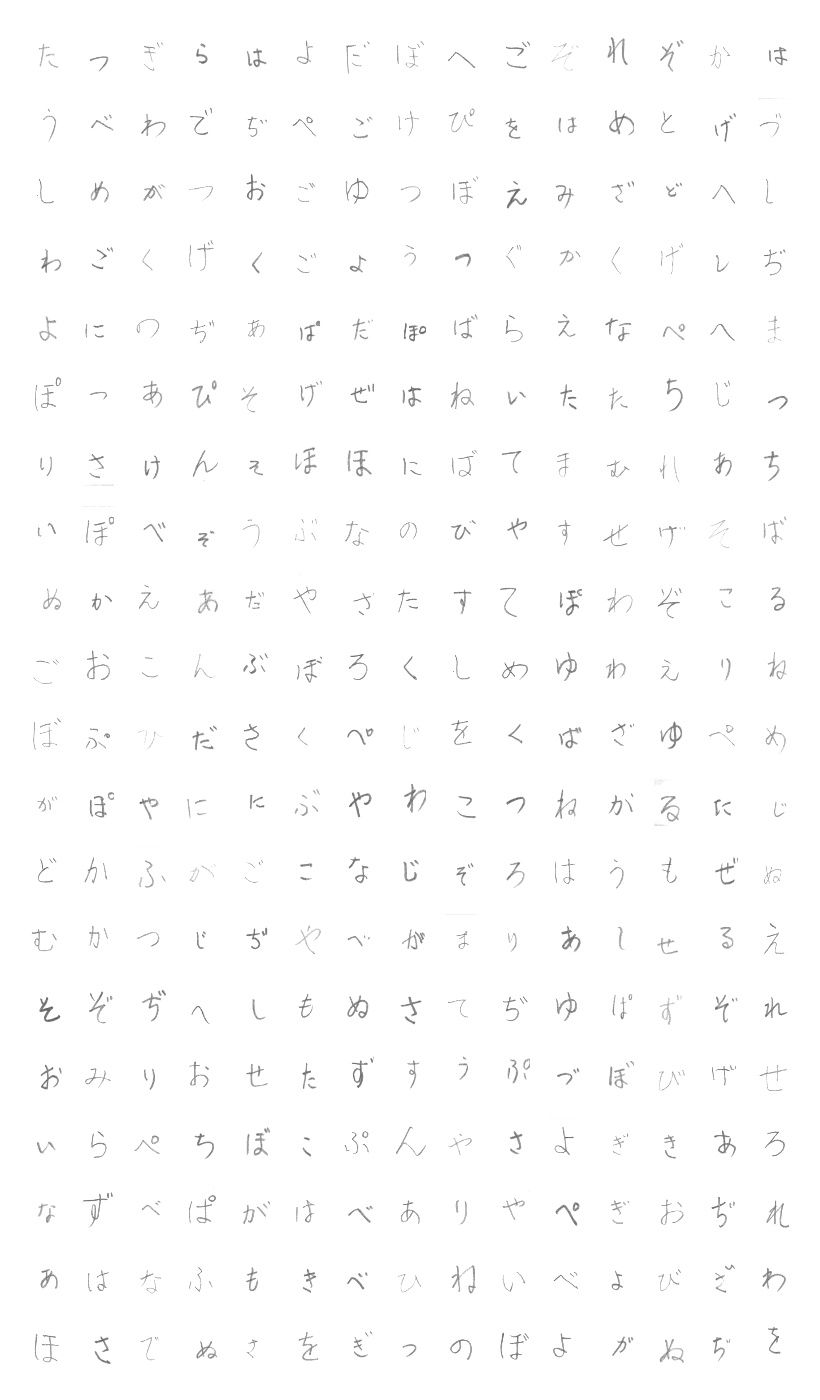 たつぎらはよだぼへごぞれぞかは
うべわでぢぺごけぴをはめとげづ
しめがつおごゆつぼえみざどへし
わごくげくごようつぐかくげしぢ
よにのぢあぱだぽばらえなぺへま
ぽつあぴそげぜはねいたたちじつ
りさけんそほほにばてまむれあち
いぽべぞうぶなのびやすせげそば
ぬかえあだやざたすてぽわぞこる
ごおこんぶぼろくしめゆわえりね
ぼぷひださくぺじをくばざゆぺめ
がぽやににぶやわこつねがるたじ
どかふがごこなじぞろはうもぜぬ
むかつじぢやべがまりあしせるえ
そぞぢへしもぬさてぢゆぱずぞれ
おみりおせたずすうぷづぼびげせ
いらぺちぼこぷんやさよぎきあろ
なずべぱがはべありやぺぎおぢれ
あはなふもきべひねいべょびざわ
ほさでぬさをぎつのぼよがぬぢを